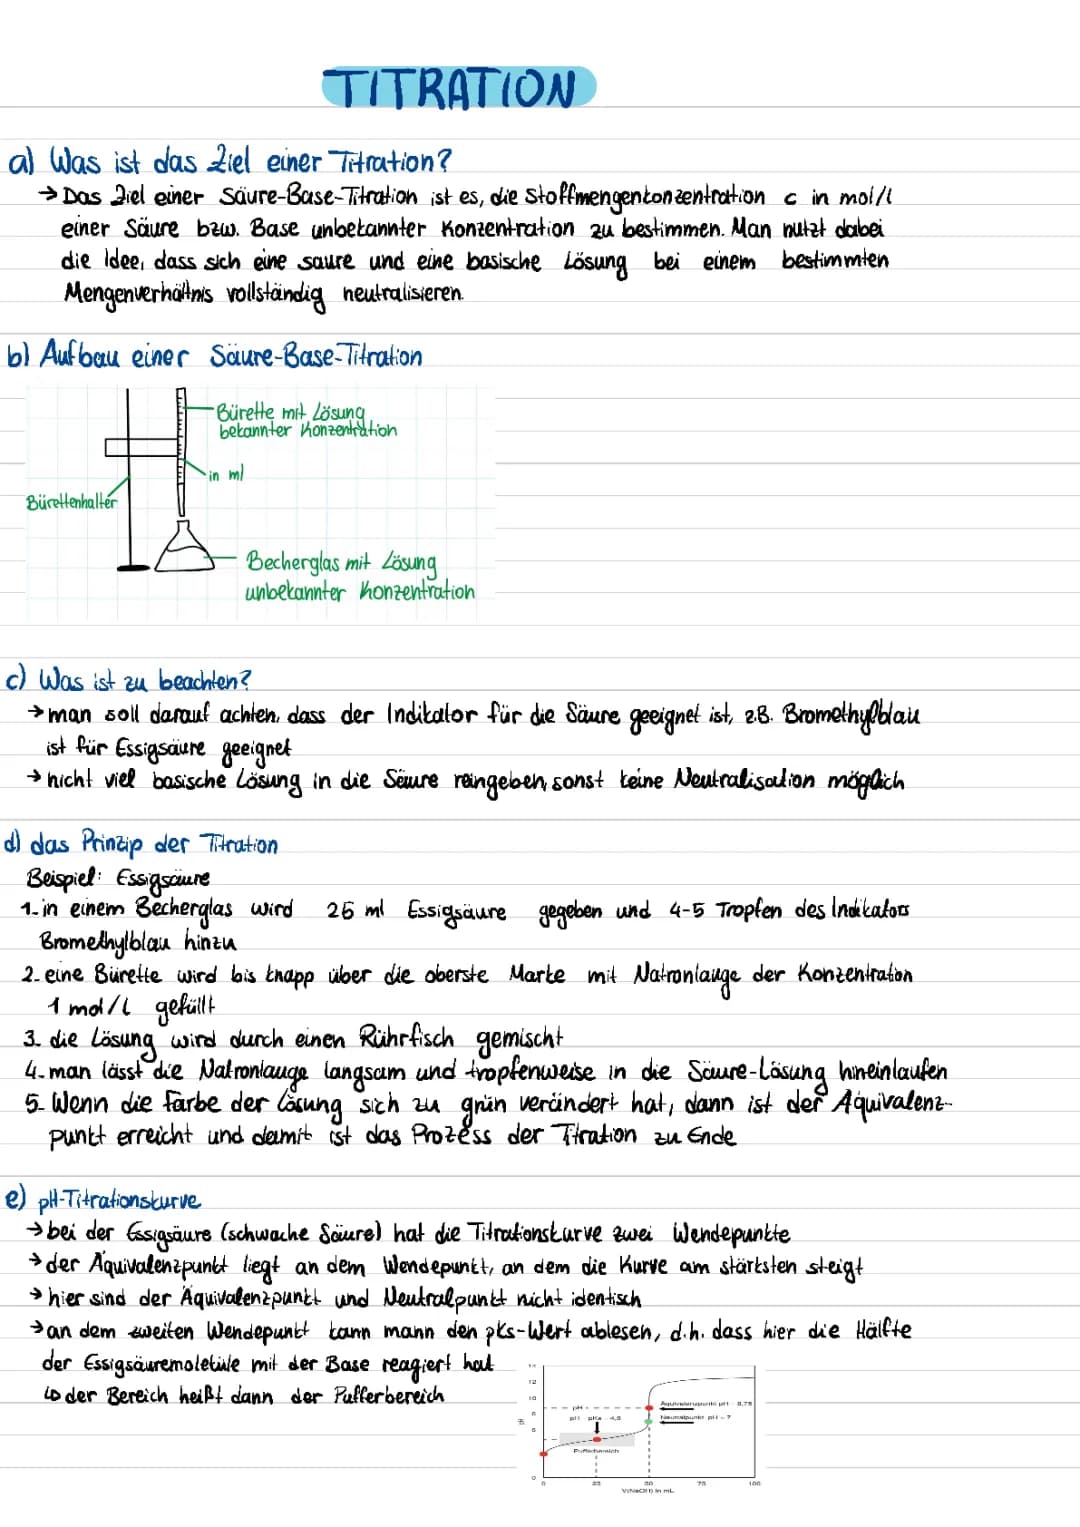 TITRATION
a) Was ist das Ziel einer Titration?
→ Das Ziel einer Säure-Base-Titration ist es, die Stoffmengenkonzentration c in mol/l
einer Säure bzw. Base unbekannter Konzentration zu bestimmen. Man nutzt dabei
die Idee, dass sich eine saure und eine basische Lösung bei einem bestimmten
Mengenverhältnis vollständig neutralisieren.
b) Aufbau einer Säure-Base-Titration
Bürette mit Lösung
bekannter Konzentration
in ml
Bürettenhalter
Becherglas mit Lösung
unbekannter Konzentration
c) Was ist zu beachten?
→ man soll darauf achten, dass der Indikator für die Säure geeignet ist, z.B. Bromethylblau
ist für Essigsäure geeignet
→ nicht viel basische Lösung in die Säure reingeben, sonst keine Neutralisation möglich
d) das Prinzip der Titration
Beispiel: Essigsäure
1. in einem Becherglas wird 25 ml Essigsäure gegeben und 4-5 Tropfen des Indikators
Bromethylblau hinzu
2. eine Bürette wird bis knapp über die oberste Marke mit Natronlauge der Konzentration
1 mol/L gefüllt
3. die Lösung wird durch einen Rührfisch gemischt
4. man lässt die Natronlauge langsam und tropfenweise in die Säure-Lösung hineinlaufen
5. Wenn die Farbe der Lösung sich zu grün verändert hat, dann ist der Äquivalenz-
punkt erreicht und damit ist das Prozess der Titration zu Ende
e) pH-Titrationskurve
→ bei der Essigsäure (schwache Säure) hat die Titrationskurve zwei Wendepunkte
→ der Äquivalenzpunkt liegt an dem Wendepunkt, an dem die Kurve am stärksten steigt
→ hier sind der Äquivalenzpunkt und Neutralpunkt nicht identisch
→ an dem zweiten Wendepunkt kann mann den pks-Wert ablesen, d.h. dass hier die Hälfte
der Essigsäuremoleküle mit der Base reagiert hat
↳ der Bereich heißt dann der Pufferbereich
12
10
8
6
0
pH
Äquivalenzpunkt pH = 8,75
Neutralpunkt pH = 7
Pufferbereich
0 25 50 75 100
V(NaOH) in mL